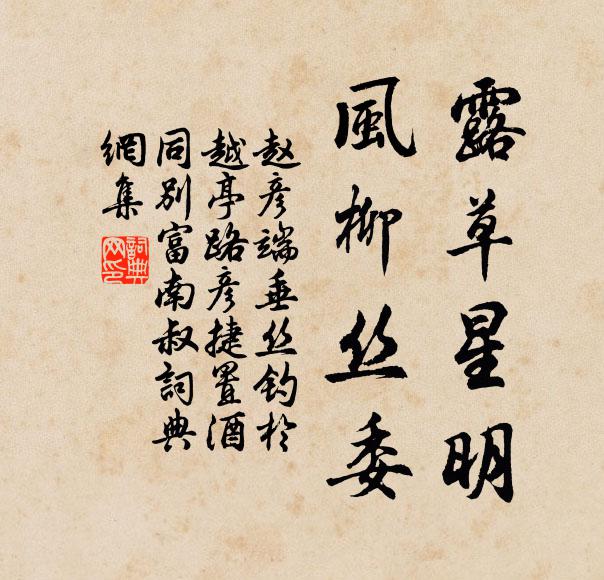 露草星明
風柳丝委
赵彦端垂丝钓於
越亭路彦捷置酒
同别富南叔詞典
網集
詞典
网印